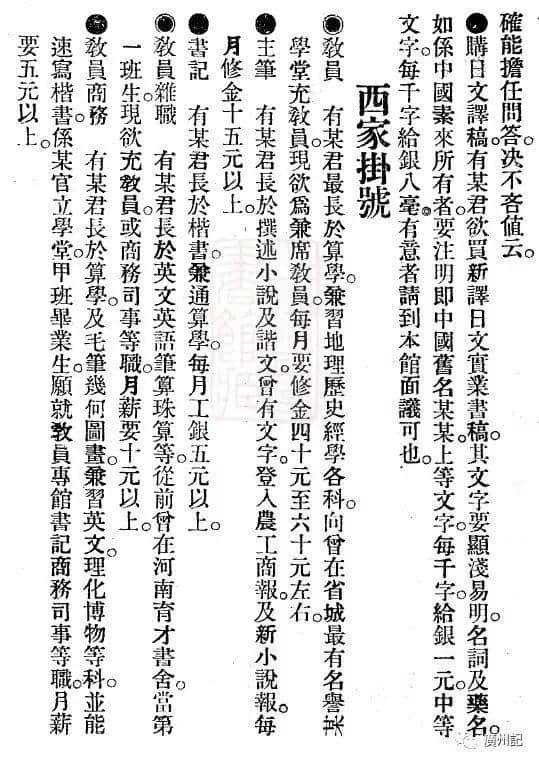 確能擔任問答。決不吝値云。
●購日文譯稿。有某君欲買新譯日文實業書稿。其文字要顯淺易明。名詞及藥名。
如係中國素來所有者。要注明即中國舊名某某。上等文字。每千字給銀一元。中等
文字。每千字給銀八毫。有意者請到本館面議可也。
西家掛號
◉敎員　有某君最長於算學。兼習地理歷史經學各科。向曾在省城最有名譽某
學堂充敎員。現欲爲兼席敎員。每月要修金四十元至六十元左右。
●主筆　有某君長於撰述小說及諧文。曾有文字。登入農工商報。及新小說報。每
月修金十五元以上。
●書記　有某君長於楷書。兼通算學。每月工銀五元以上。
◉敎員雜職　有某君長於英文英語筆算珠算等。從前曾在河南育才書舍。當第
一班生。現欲充敎員。或商務司事等職。月薪要十元以上。
◉敎員商務　有某君長於算學。及毛筆幾何圖畫。兼習英文。理化博物等科。並能
速寫楷書。係某官立學堂。甲班畢業生。願就敎員專館書記商務司事等職。月薪
要五元以上。
廣州記